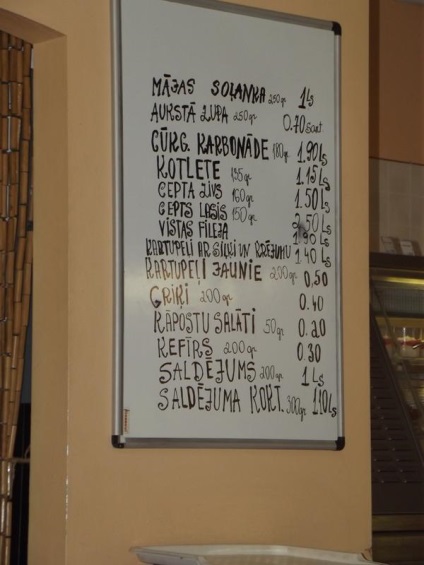 MĀJAS SOĻANKA 250 gr 1 Ls
AUKSTĀ ZUPA 250 gr 0.70 Sant.
CŪKG. KARBONĀDE 180 gr 1.90 Ls
KOTLETE 135 gr 1.15 Ls
CEPTA ZIVS 160 gr 1.50 Ls
CEPTS LASIS 150 gr 2.50 Ls
VISTAS FILEJA 1.90 Ls
KARTUPEĻI AR SIĻĶI UN KRĒJUMU 1.40 Ls
KARTUPEĻI JAUNIE 200 gr 0,50
GRIĶI 200 gr 0.40
KĀPOSTU SALĀTI 50 gr 0.20
KEFĪRS 200 gr 0.30
SALDĒJUMS 200 gr 1 Ls
SALDĒJUMA KOKT. 300 gr 1.10 Ls